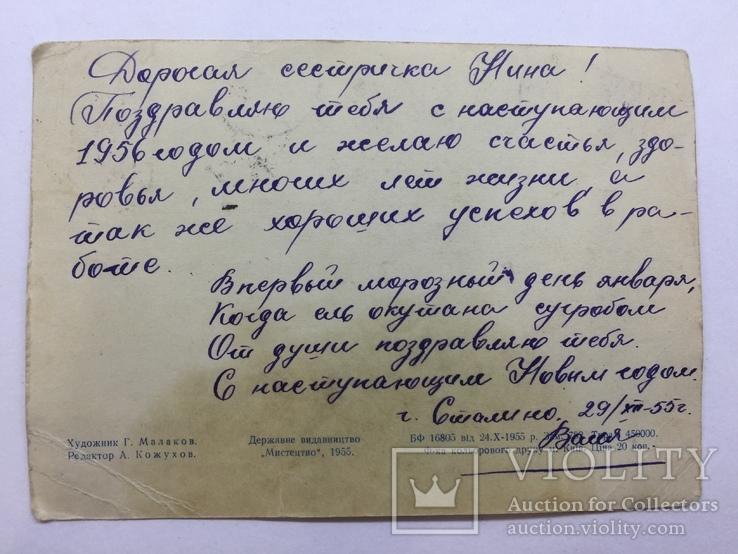 Дорогая сестричка Нина!
Поздравляю тебя с наступающим
1956 годом и желаю счастья, здо-
ровья, многих лет жизни, а
так же хороших успехов в ра-
боте.
В первый морозный день января,
Когда ель окутана сугробом
От души поздравляю тебя.
С наступающим Новым годом.
г. Сталино, 29/XII-55г.
Художник Г. Малаков.
Редактор А. Кожухов.
Державне видавництво
„Мистецтво", 1955.
БФ 16805 від 24.X-1955 р. 450000.
Ф-ка кольорового друку Київ. Ціна 20 коп.
VIOLITY
Auction for Collectors
auction.violity.com